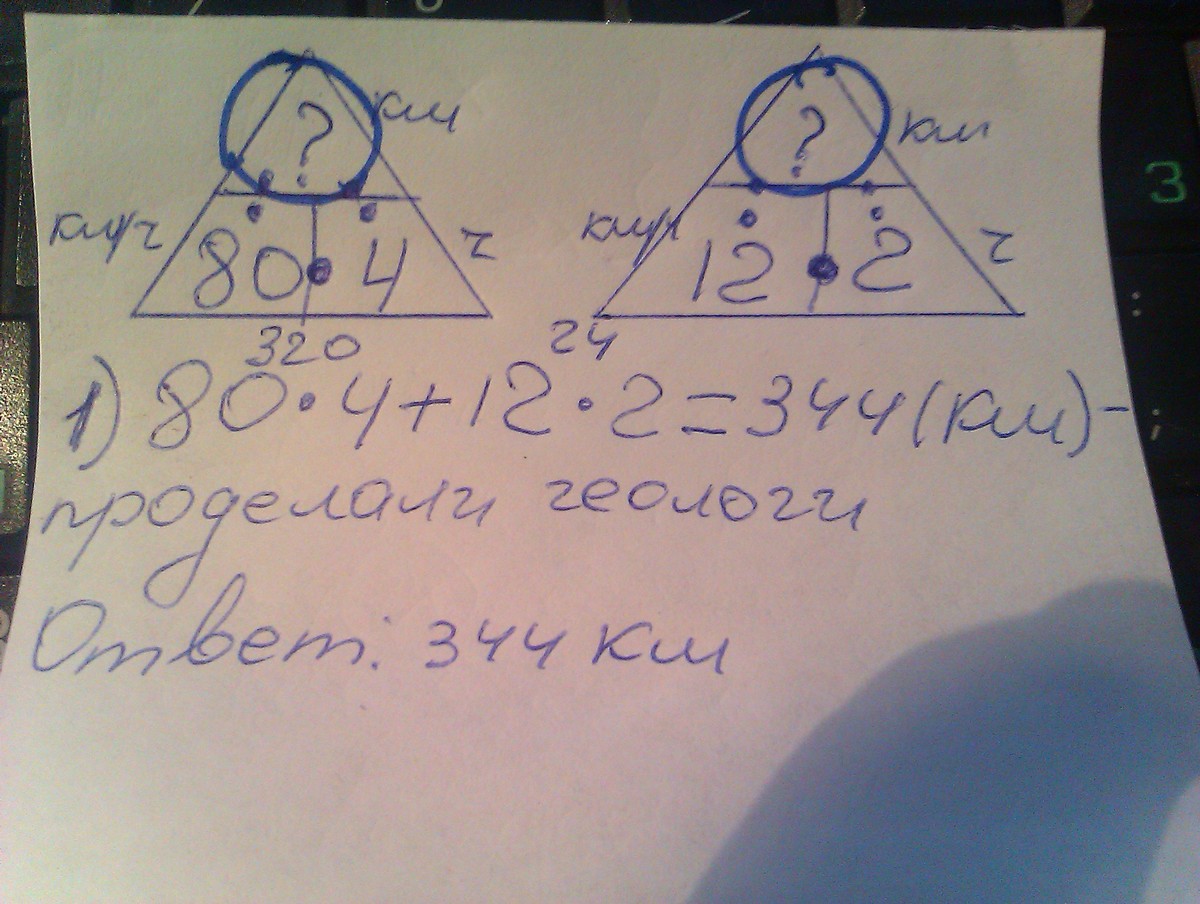 ? км ? км
км/ч 80 • 4 ч км/ч 12 • 2 ч
320 24
1) 80•4+12•2=344(км)-
проделали геологи
Ответ: 344 км
3
;